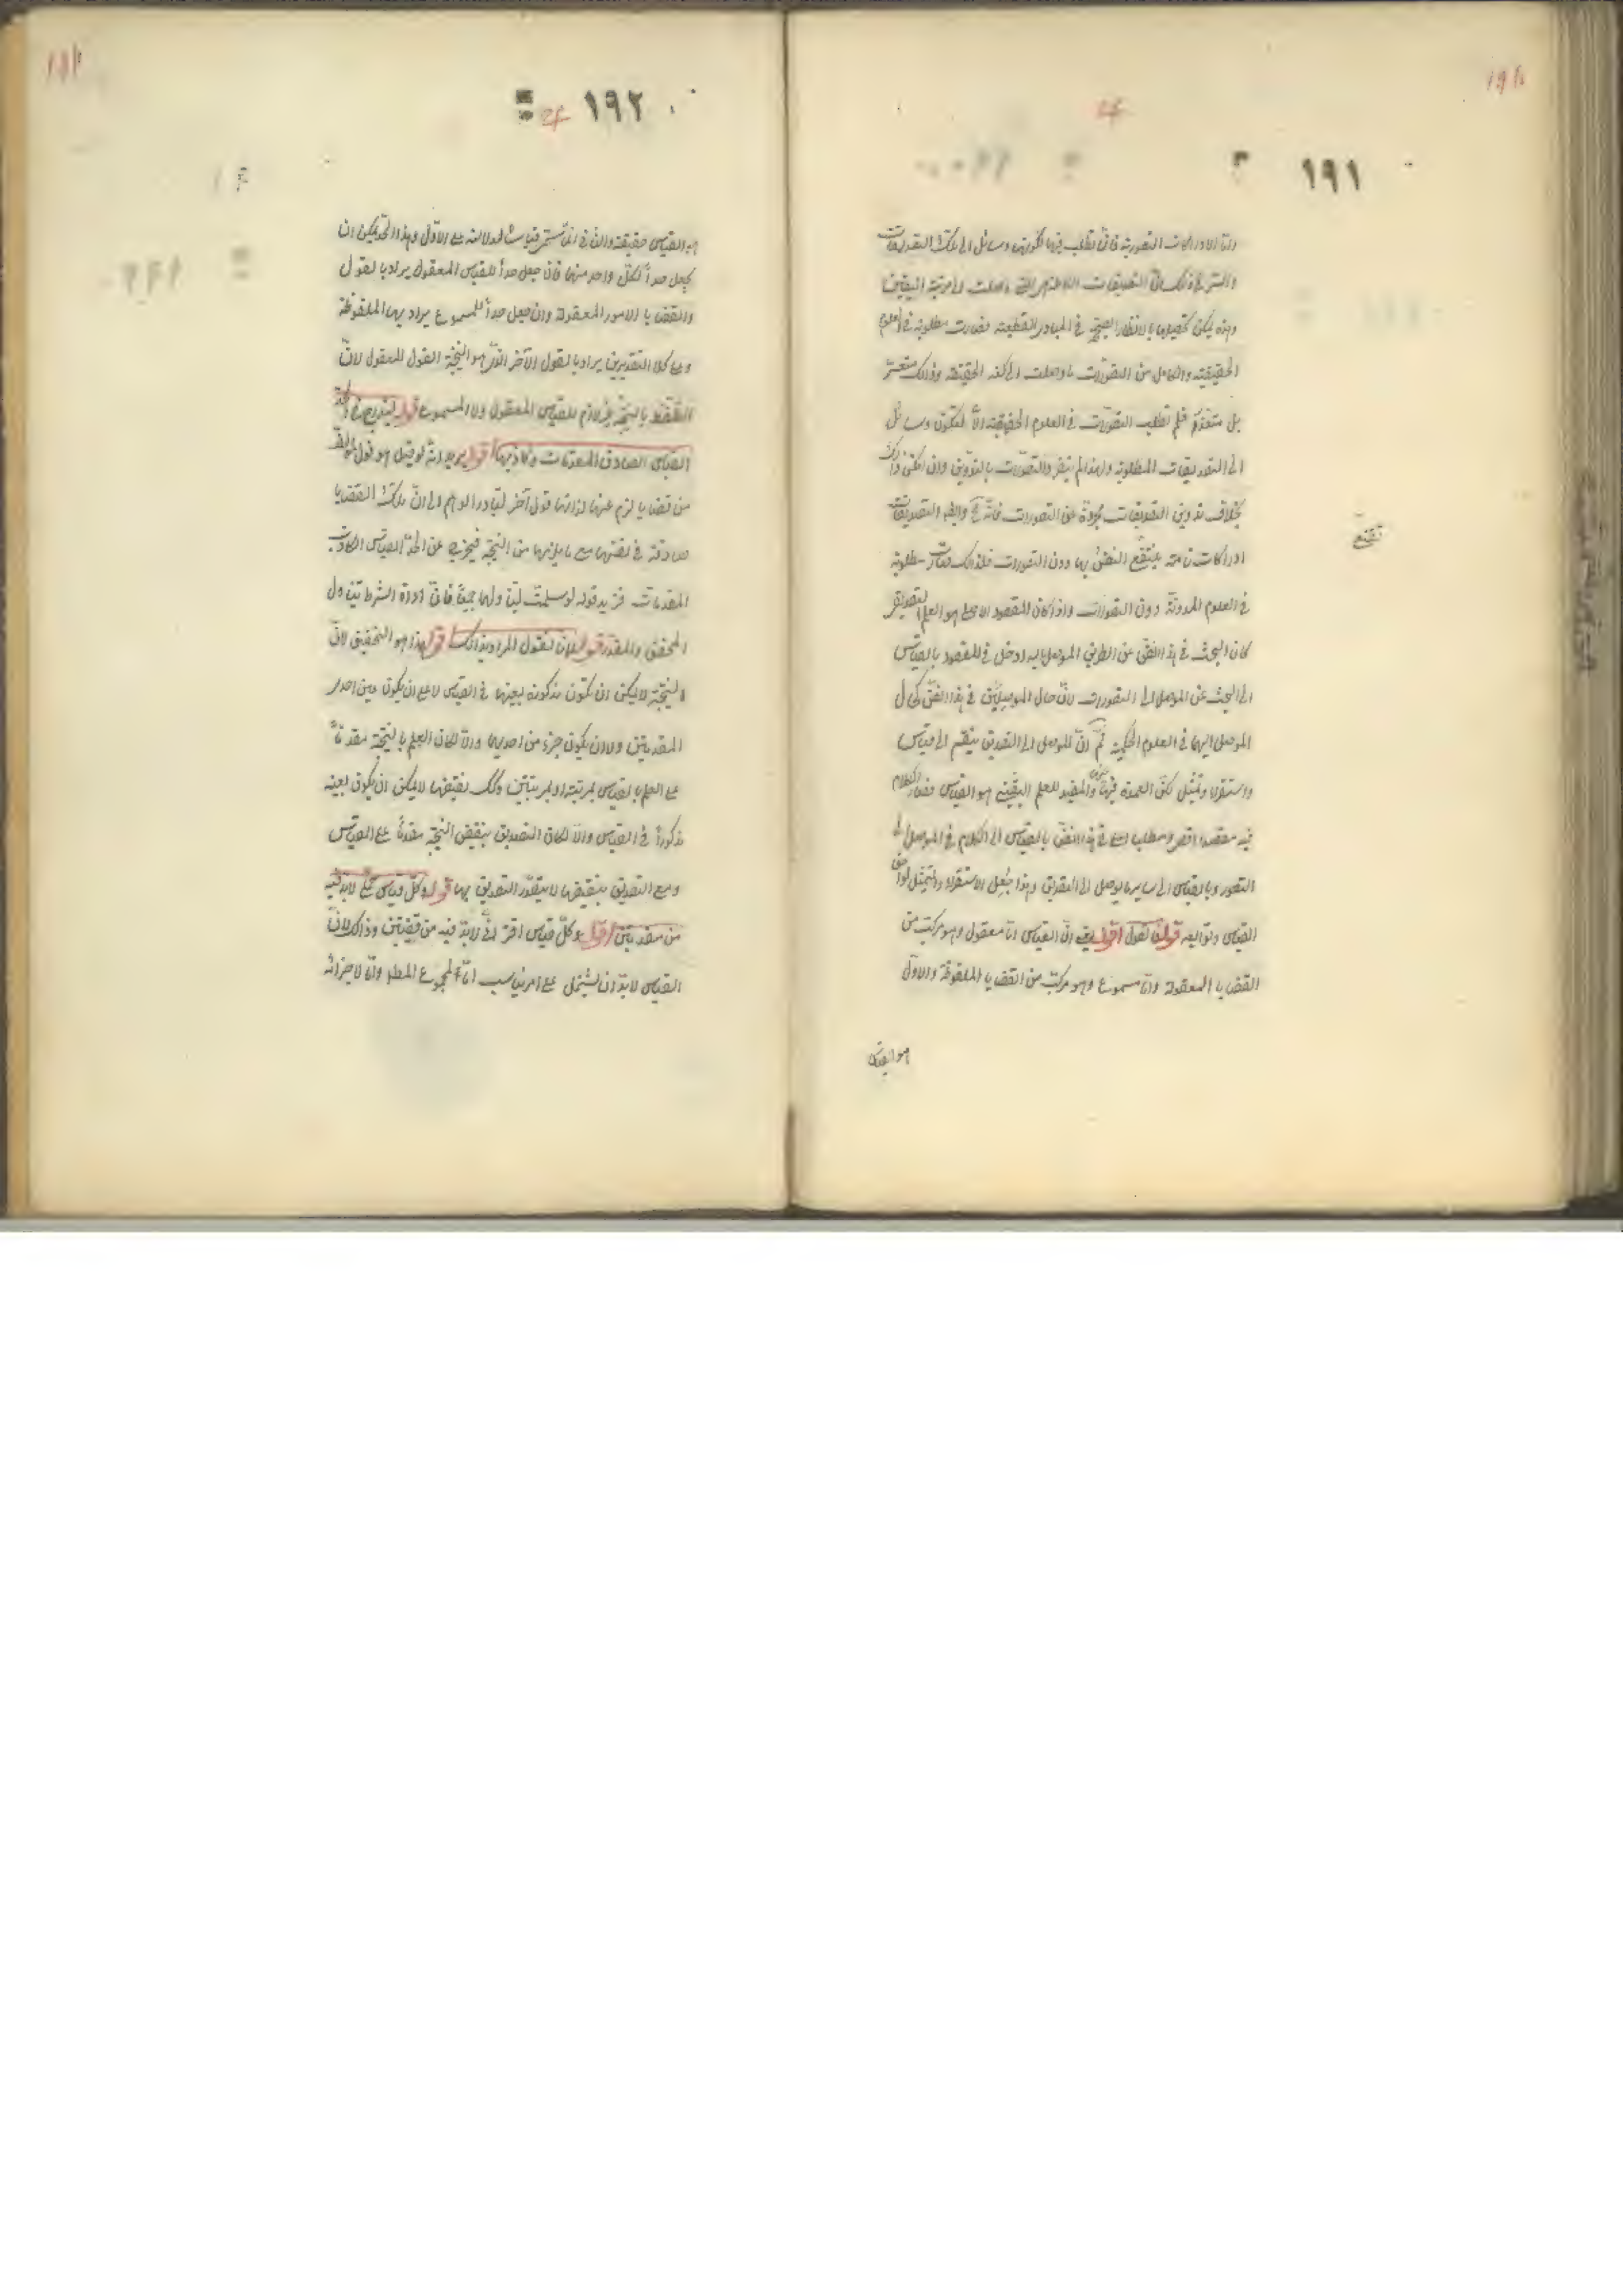 ١٩١
واما الادراكات التصورية فانما تطلب فيها لكونها وسائل الى تلك التصديقات
والسر في ذلك ان التصديقات الكاملة هي التي وصلت الى مرتبة اليقين
وهذه يمكن تحصيلها بالانظار الصحيحة في المبادى القطعية فصارت مطلوبة في العلوم
الحقيقية والكامل من التصورات ما وصلت الى كنه الحقيقة وذلك متعسر
بل متعذر فلم تطلب التصورات في العلوم الحقيقية الا لتكون وسائل
الى التصديقات المطلوبة ولهذا لم يتفرد التصورات بالتدوين وان امكن ذلك
بخلاف تدوين التصديقات مجردة عن التصورات فانه مح وايضا التصديقات
ادراكات تامة يقتنع النفس بها دون التصورات فلذلك صارت مطلوبة
تقنع
في العلوم المدونة دون التصورات واذا كان المقصود الاعلى هو العلم التصديقى
كان البحث في هذا الفن عن الطريق الموصل اليه ادخل في المقصود بالقياس
الى البحث عن الموصل الى التصورات لان حال الموصلين في هذا الفن كحال
الموصل اليهما في العلوم الحكمية ثم ان الموصل الى التصديق ينقسم الى قياس
واستقراء وتمثيل لكن العمدة فيها والمفيد للعلم اليقينى هو القياس فصار الكلام
فيه مقصدا اقصى ومطلب اعلى في هذا الفن بالقياس الى الكلام في الموصل الى
التصور وبالقياس الى ساير ما يوصل الى التصديق ولهذا جعل الاستقراء والتمثيل لواحق
القياس وتوابعه قوله فنقول اقول ان القياس اما معقول وهو مركب من
القضايا المعقولة واما مسموع وهو مركب من القضايا الملفوظة والاول
هو القياس
١٩٢
هو القياس حقيقة والثانى انما سمى قياسا لدلالته على الاول وهذا الحد يمكن ان
يجعل حدا لكل واحد منهما فان جعل حدا للقياس المعقول يراد بالقول
والقضايا الامور المعقولة وان جعل حدا للمسموع يراد بهما الملفوظة
وعلى كلا التقديرين يراد بالقول الآخر الذى هو النتيجة القول المعقول لان
التلفظ بالنتيجة غير لازم للقياس المعقول ولا المسموع قوله ليندرج في الحد
القياس الصادق المقدمات وكاذبها اقول يريد انه لو قيل هو قول مؤلف
من قضايا لزم عنها لذاتها قول آخر لتبادر الوهم الى ان تلك القضايا
صادقة في نفسها مع ما يلزمها من النتيجة فيخرج عن الحد القياس الكاذب
المقدمات فزيد قوله لو سلمت ليتناولهما جميعا فان اداة الشرط يتناول
المحقق والمقدر قوله لانا نقول المراد بذلك اقول هذا هو التحقيق لان
النتيجة لا يمكن ان تكون مذكورة بعينها في القياس لا على ان يكون عين احدى
المقدمتين ولا ان يكون جزء من احديهما والا لكان العلم بالنتيجة مقدما
على العلم بالقياس بمرتبة او بمرتبتين وكذلك نقيضها لا يمكن ان يكون بعينه
مذكورا في القياس والا لكان التصديق بنقيض النتيجة مقدما على القياس
ومع التصديق بنقيضها لا يتصور التصديق بها قوله وكل قياس حملى لابد فيه
من مقدمتين اقول وكل قياس اقترانى لابد فيه من قضيتين وذلك لان
القياس لابد ان يشتمل على امر يناسب اما لمجموع المطلوب واما لاجزائه